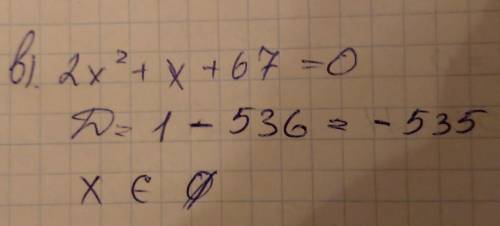 в). 2x² + x + 67 = 0
D = 1 - 536 = - 535
x ∈ ∅